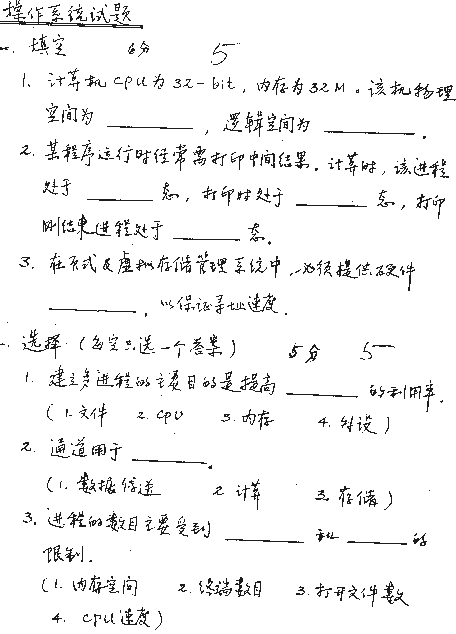 操作系统试题
一. 填空 6分 5
1. 计算机CPU为32-bit，内存为32M。该机物理
空间为 ________，逻辑空间为 ________.
2. 某程序运行时经常需打印中间结果。计算时，该进程
处于 ______ 态，打印时处于 ______ 态，打印
刚结束进程处于 ______ 态。
3. 在页式及虚拟存储管理系统中，必须提供硬件
________，以保证寻址速度.
选择 (每空只选一个答案) 5分 5
1. 建立多进程的主要目的是提高 ______ 的利用率.
(1.文件 2. CPU 3.内存 4.外设)
2. 通道用于 ______.
(1. 数据传送 2 计算 3. 存储)
3. 进程的数目主要受到 ______ 和 ______ 的
限制.
(1. 内存空间 2. 终端数目 3.打开文件数
4. CPU速度)